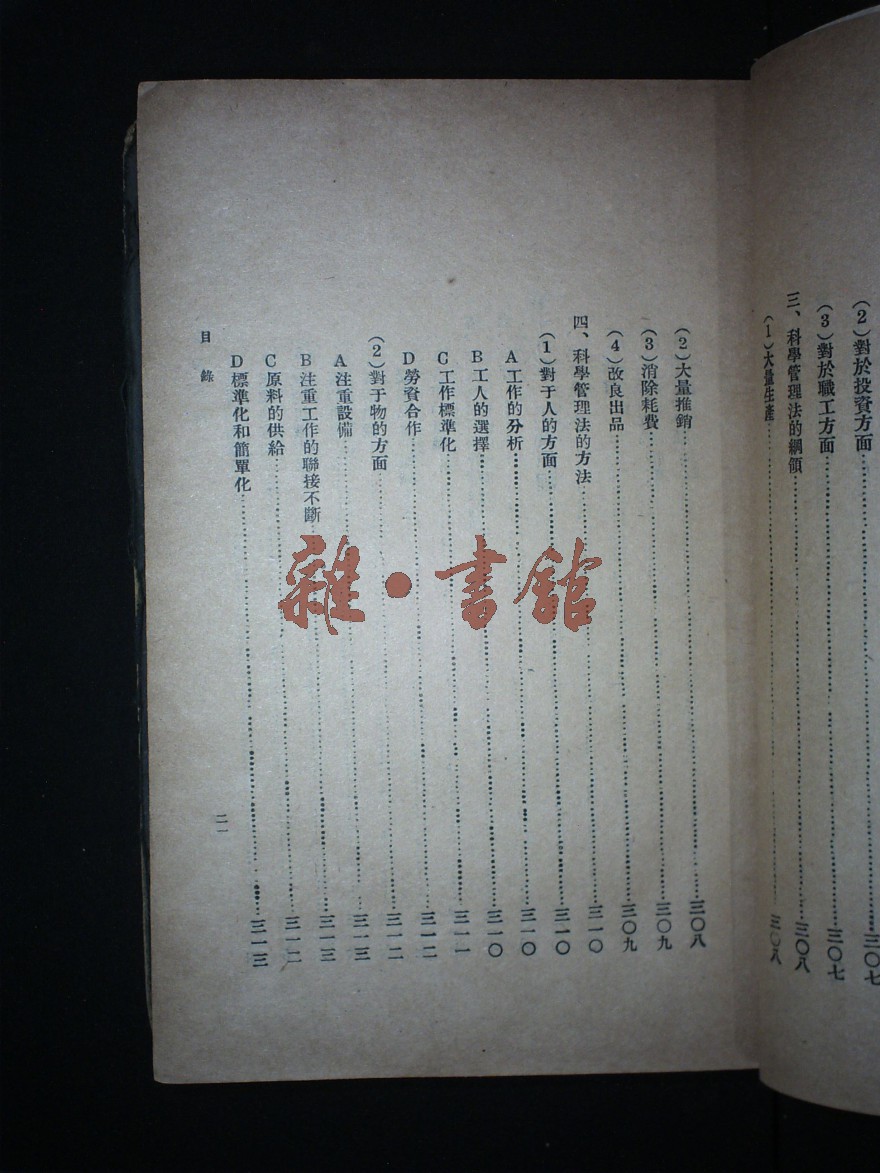 (2)對於投資方面……三〇七
(3)對於職工方面……三〇七
三、科學管理法的綱領……三〇八
(1)大量生產……三〇八
(2)大量推銷……三〇八
(3)消除耗費……三〇九
(4)改良出品……三〇九
四、科學管理法的方法……三一〇
(1)對于人的方面……三一〇
A工作的分析……三一〇
B工人的選擇……三一〇
C工作標準化……三一一
D勞資合作……三一二
(2)對于物的方面……三一二
A注重設備……三一三
B注重工作的聯接不斷……三一三
C原料的供給……三一二
D標準化和簡單化……三一三
目錄
二一
雜·書館